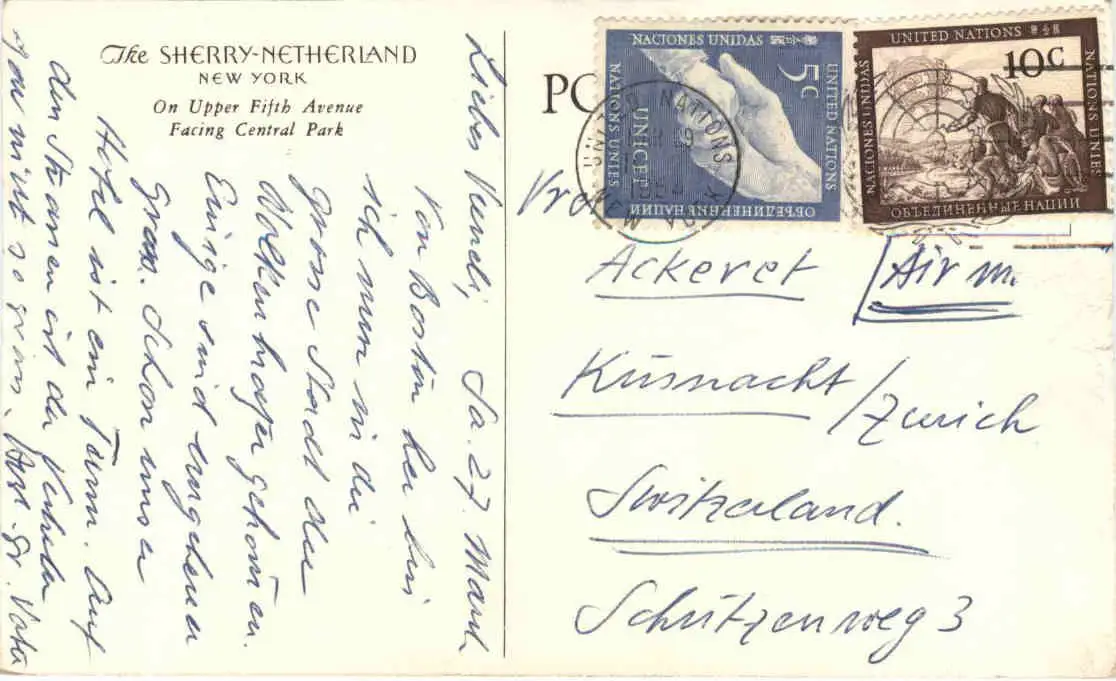 The SHERRY-NETHERLAND
NEW YORK
On Upper Fifth Avenue
Facing Central Park
Liebs Vrendi, Sa. 27. March
Von Boston her bin
ich nun in die
grosse Stadt der
Wolkenkrazer gekommen.
Einige sind ungeheuer
gross. Schon unser
Hotel ist ein Turm. Auf
den Strassen ist der Verkehr
gar nicht so gross. Herzl. Gr. Vater
PO
NACIONES UNIDAS
5c
UNITED NATIONS
UNICEF
NATIONS UNIES
ОБЪЕДИНЕННЫЕ НАЦИИ
UNITED NATIONS
10c
NACIONES UNIDAS
NATIONS UNIES
ОБЪЕДИНЕННЫЕ НАЦИИ
UNITED NATIONS
Ackeret
Air m.
Küsnacht/Zurich
Switzerland.
Schützenweg 3